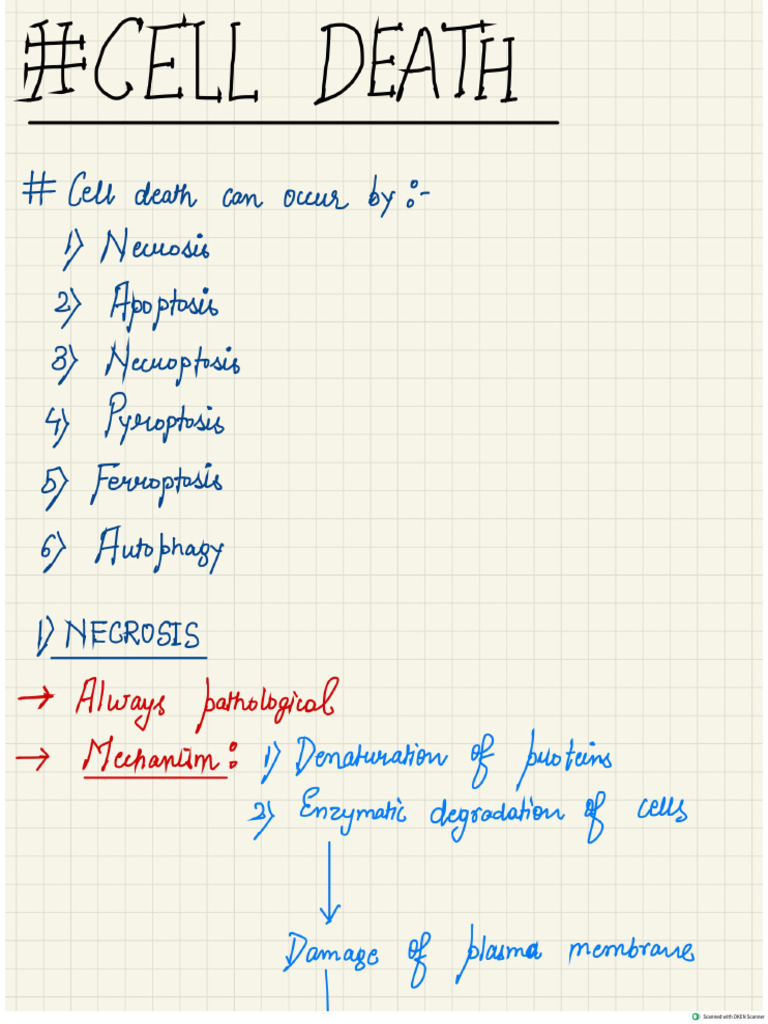 #CELL DEATH
# Cell death can occur by :-
1) Necrosis
2) Apoptosis
3) Necroptosis
4) Pyroptosis
5) Ferroptosis
6) Autophagy
1) NECROSIS
→ Always pathological
→ Mechanism : 1) Denaturation of proteins
2) Enzymatic degradation of cells
↓
Damage of plasma membrane
Scanned with OKEN Scanner